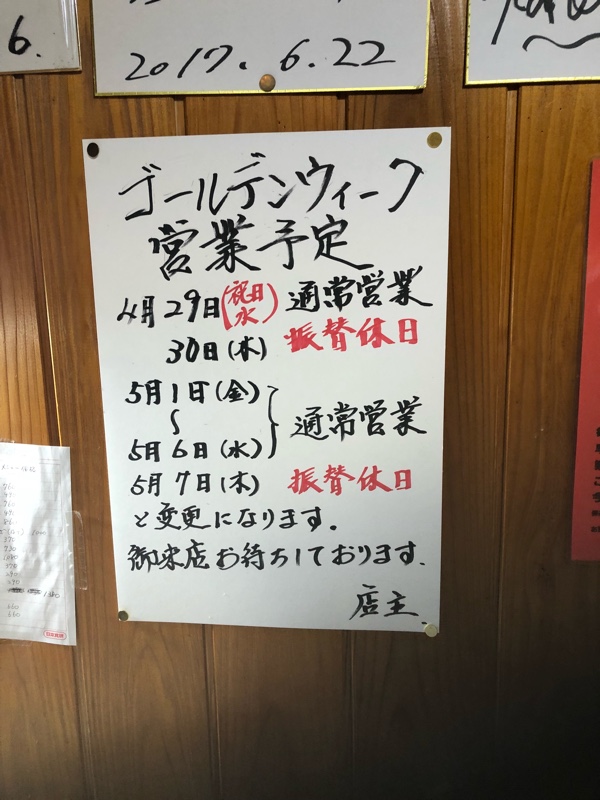 6.
2017. 6. 22
ゴールデンウィーク
営業予定
4月29日(祝日 水) 通常営業
30日(木) 振替休日
5月1日(金)
〜
5月6日(水) 通常営業
5月7日(木) 振替休日
と変更になります。
御来店お待ちしております.
店主